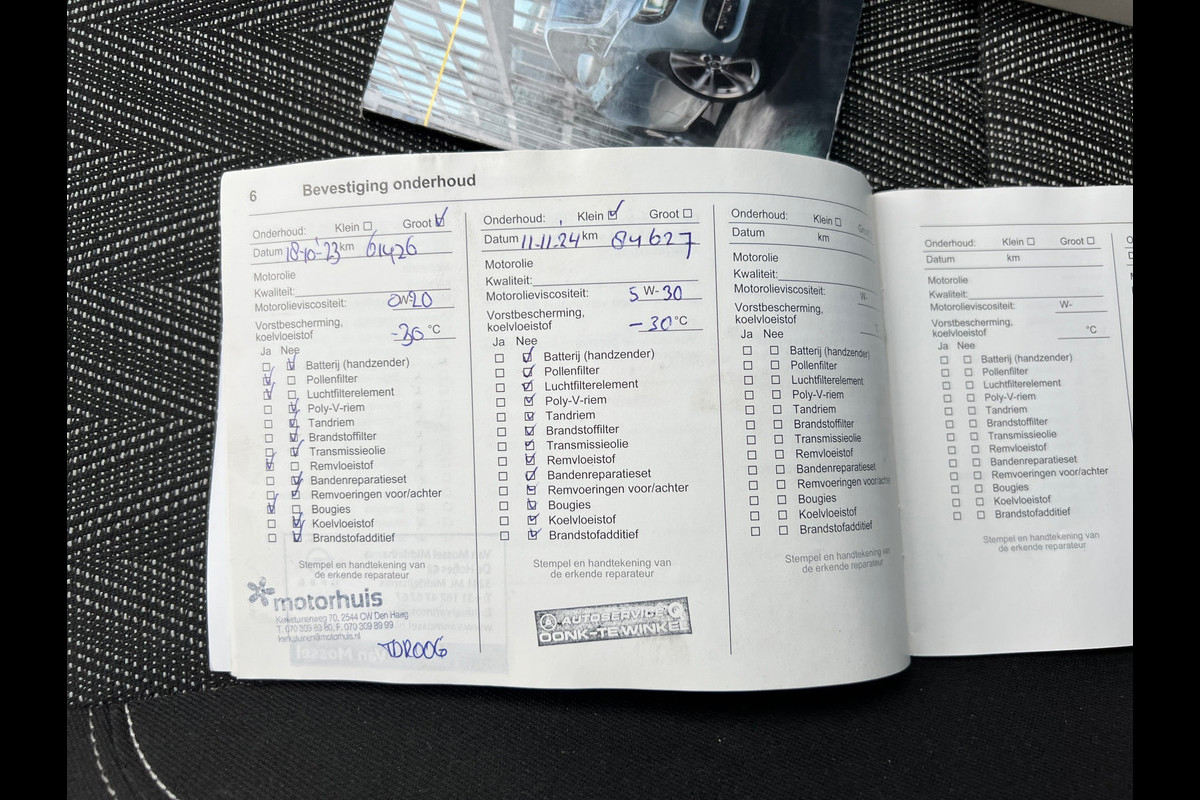 6 Bevestiging onderhoud
Onderhoud: Klein Groot
Datum 18-10-'23 km 61426
Motorolie
Kwaliteit:
Motorolieviscositeit: 0W-20
Vorstbescherming,
koelvloeistof -30 °C
Ja Nee
Batterij (handzender)
Pollenfilter
Luchtfilterelement
Poly-V-riem
Tandriem
Brandstoffilter
Transmissieolie
Remvloeistof
Bandenreparatieset
Remvoeringen voor/achter
Bougies
Koelvloeistof
Brandstofadditief
Stempel en handtekening van
de erkende reparateur
motorhuis
Kerketuinenweg 70, 2544 CW Den Haag
T. 070 309 89 80, F. 070 309 89 99
kerketuinen@motorhuis.nl
TDR006
Onderhoud: Klein Groot
Datum 11-11-24 km 84627
Motorolie
Kwaliteit:
Motorolieviscositeit: 5 W-30
Vorstbescherming,
koelvloeistof -30 °C
Ja Nee
Batterij (handzender)
Pollenfilter
Luchtfilterelement
Poly-V-riem
Tandriem
Brandstoffilter
Transmissieolie
Remvloeistof
Bandenreparatieset
Remvoeringen voor/achter
Bougies
Koelvloeistof
Brandstofadditief
Stempel en handtekening van
de erkende reparateur
AUTOSERVICE
OONK-TE WINKEL
Onderhoud: Klein Groot
Datum km
Motorolie
Kwaliteit:
Motorolieviscositeit: W-
Vorstbescherming,
koelvloeistof °C
Ja Nee
Batterij (handzender)
Pollenfilter
Luchtfilterelement
Poly-V-riem
Tandriem
Brandstoffilter
Transmissieolie
Remvloeistof
Bandenreparatieset
Remvoeringen voor/achter
Bougies
Koelvloeistof
Brandstofadditief
Stempel en handtekening van
de erkende reparateur
Onderhoud: Klein Groot
Datum km
Motorolie
Kwaliteit:
Motorolieviscositeit: W-
Vorstbescherming,
koelvloeistof °C
Ja Nee
Batterij (handzender)
Pollenfilter
Luchtfilterelement
Poly-V-riem
Tandriem
Brandstoffilter
Transmissieolie
Remvloeistof
Bandenreparatieset
Remvoeringen voor/achter
Bougies
Koelvloeistof
Brandstofadditief
Stempel en handtekening van
de erkende reparateur